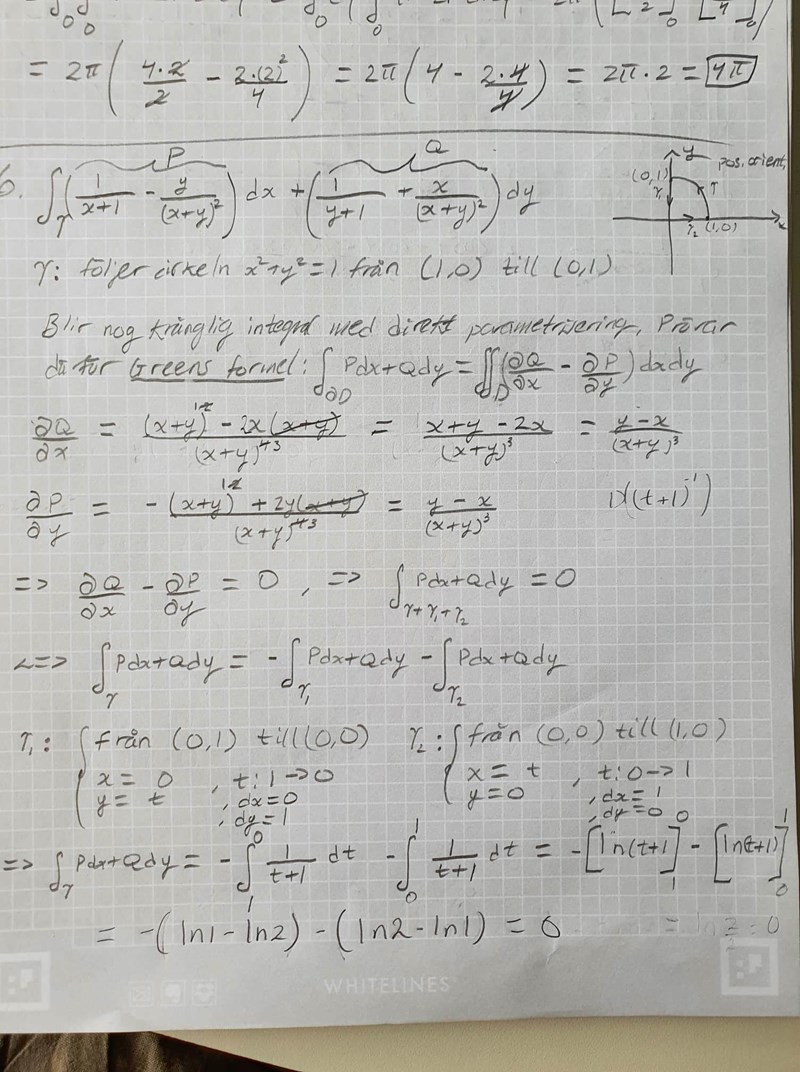 = 2π( 4·2/2 - 2·(2)²/4 ) = 2π(4 - 2·4/4) = 2π·2 = 4π
P Q y pos. orient.
6. ∫γ (1/(x+1) - y/(x+y)²) dx + (1/(y+1) + x/(x+y)²) dy
(0,1) γ₁ γ γ₂ (1,0) x
γ: följer cirkeln x²+y²=1 från (1,0) till (0,1)
Blir nog krånglig integral med direkt parametrisering, Prövar
då för Greens formel: ∫∂D Pdx+Qdy = ∬D (∂Q/∂x - ∂P/∂y) dxdy
∂Q/∂x = ((x+y)² - 2x(x+y))/(x+y)⁴³ = (x+y-2x)/(x+y)³ = (y-x)/(x+y)³
∂P/∂y = (-(x+y)² + 2y(x+y))/(x+y)⁴³ = (y-x)/(x+y)³ D((t+1)⁻¹)
=> ∂Q/∂x - ∂P/∂y = 0 , => ∫γ+γ₁+γ₂ Pdx+Qdy = 0
<=> ∫γ Pdx+Qdy = -∫γ₁ Pdx+Qdy - ∫γ₂ Pdx+Qdy
γ₁: { från (0,1) till (0,0) γ₂: { från (0,0) till (1,0)
x = 0 , t: 1->0 x = t , t: 0->1
y = t , dx=0 y=0 , dx=1
, dy=1 , dy=0
=> ∫γ Pdx+Qdy = -∫₁⁰ 1/(t+1) dt - ∫₀¹ 1/(t+1) dt = -[ln(t+1)]₁⁰ - [ln(t+1)]₀¹
= -(ln1-ln2) - (ln2-ln1) = 0
WHITELINES